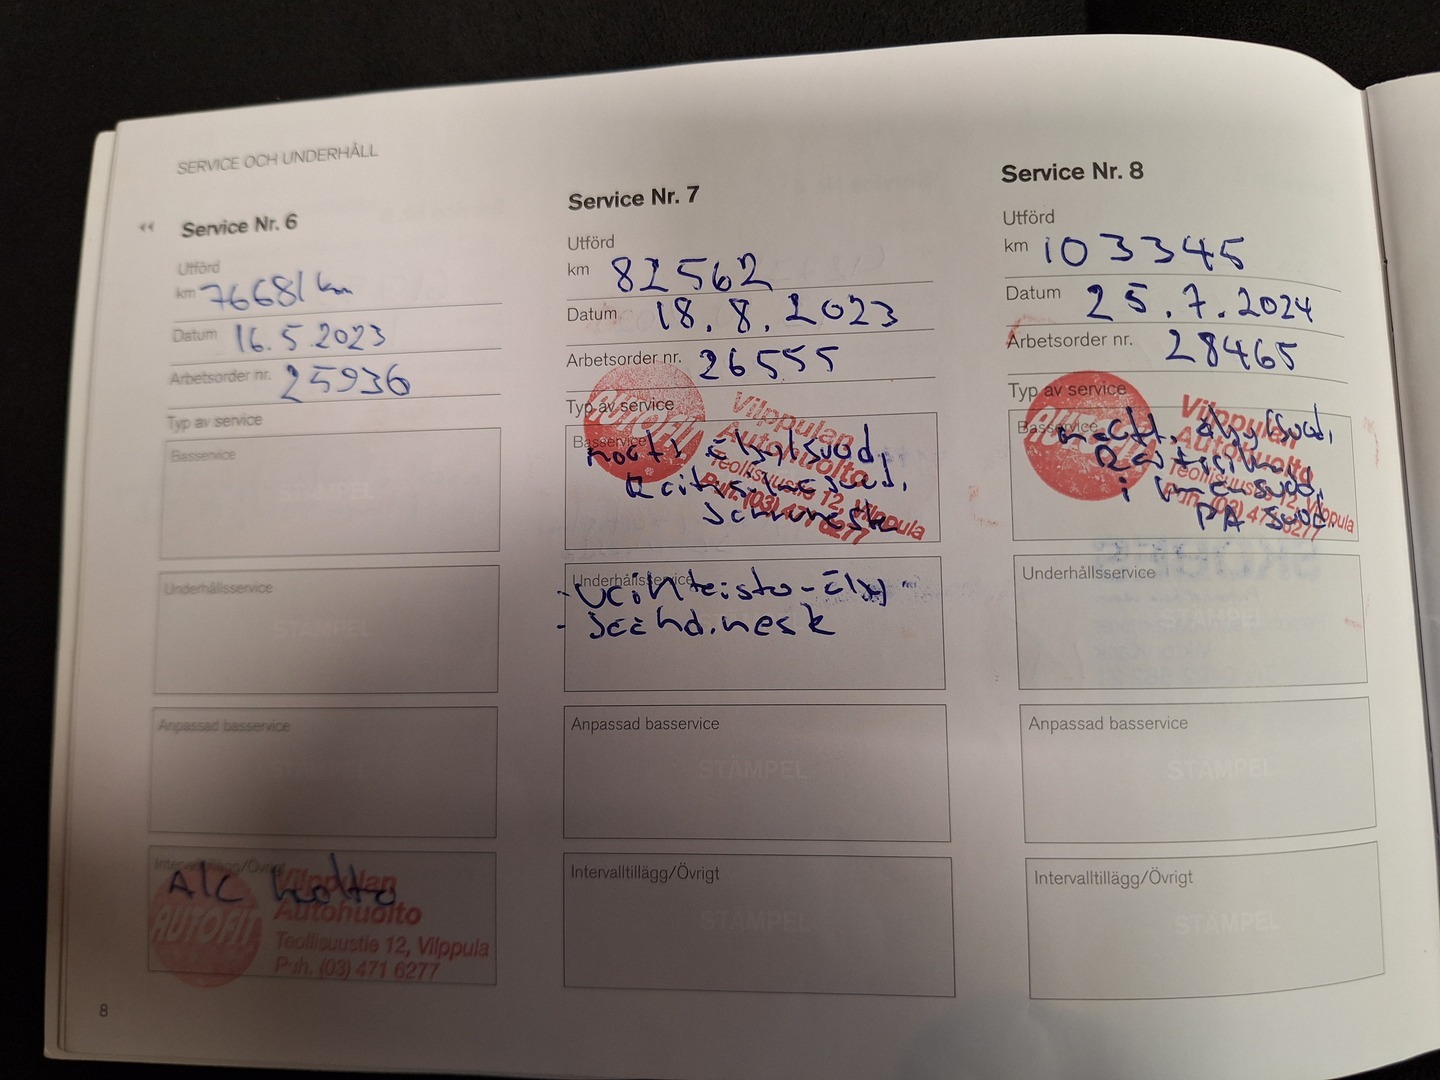 SERVICE OCH UNDERHÅLL
Service Nr. 6
Utförd
km 76681 km
Datum 16.5.2023
Arbetsorder nr. 25936
Typ av service
Basservice
STÄMPEL
Underhållsservice
STÄMPEL
Anpassad basservice
STÄMPEL
Intervalltillägg/Övrigt
A/C huolto
AUTOFIT
Vilppulan
Autohuolto
Teollisuustie 12, Vilppula
Puh. (03) 471 6277
8
Service Nr. 7
Utförd
km 82562
Datum 18.8.2023
Arbetsorder nr. 26555
Typ av service
Basservice
AUTOFIT
Vilppulan
Autohuolto
Teollisuustie 12, Vilppula
Puh. (03) 471 6277
Underhållsservice
- Vaihteisto-öljy
Anpassad basservice
STÄMPEL
Intervalltillägg/Övrigt
STÄMPEL
Service Nr. 8
Utförd
km 103345
Datum 25.7.2024
Arbetsorder nr. 28465
Typ av service
Basservice
AUTOFIT
Vilppulan
Autohuolto
Teollisuustie 12, Vilppula
Puh. (03) 471 6277
Underhållsservice
Anpassad basservice
STÄMPEL
Intervalltillägg/Övrigt
STÄMPEL